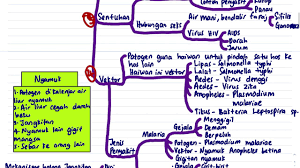 Contoh penyakit
Kurap
Panau
Sentuhan
Hubungan seks
Air mani, bendalir faraj
Sifilis
Gonorea
Virus HIV
AIDS
Darah
Jarum
Vektor
Patogen guna haiwan untuk pindah satu hos ke hos lain
Haiwan ini vektor
Lipas - Salmonella typhi
Lalat - Salmonella typhi
Aedes - Virus denggi
Aedes - Virus zika
Anopheles - Plasmodium malariae
Tikus - Bakteria Leptospira sp
Nyamuk
1. Patogen di kelenjar air liur nyamuk
2. Air liur cegah darah beku
3. Jangkitan
4. Nyamuk lain gigit mangsa
5. Sebar ke orang lain
Jenis Penyakit
Malaria
Gejala
Menggigil
Demam
Berpeluh
Patogen - Plasmodium malariae
Vektor - Nyamuk Anopheles betina
Gigitan nyamuk
Mekanisme